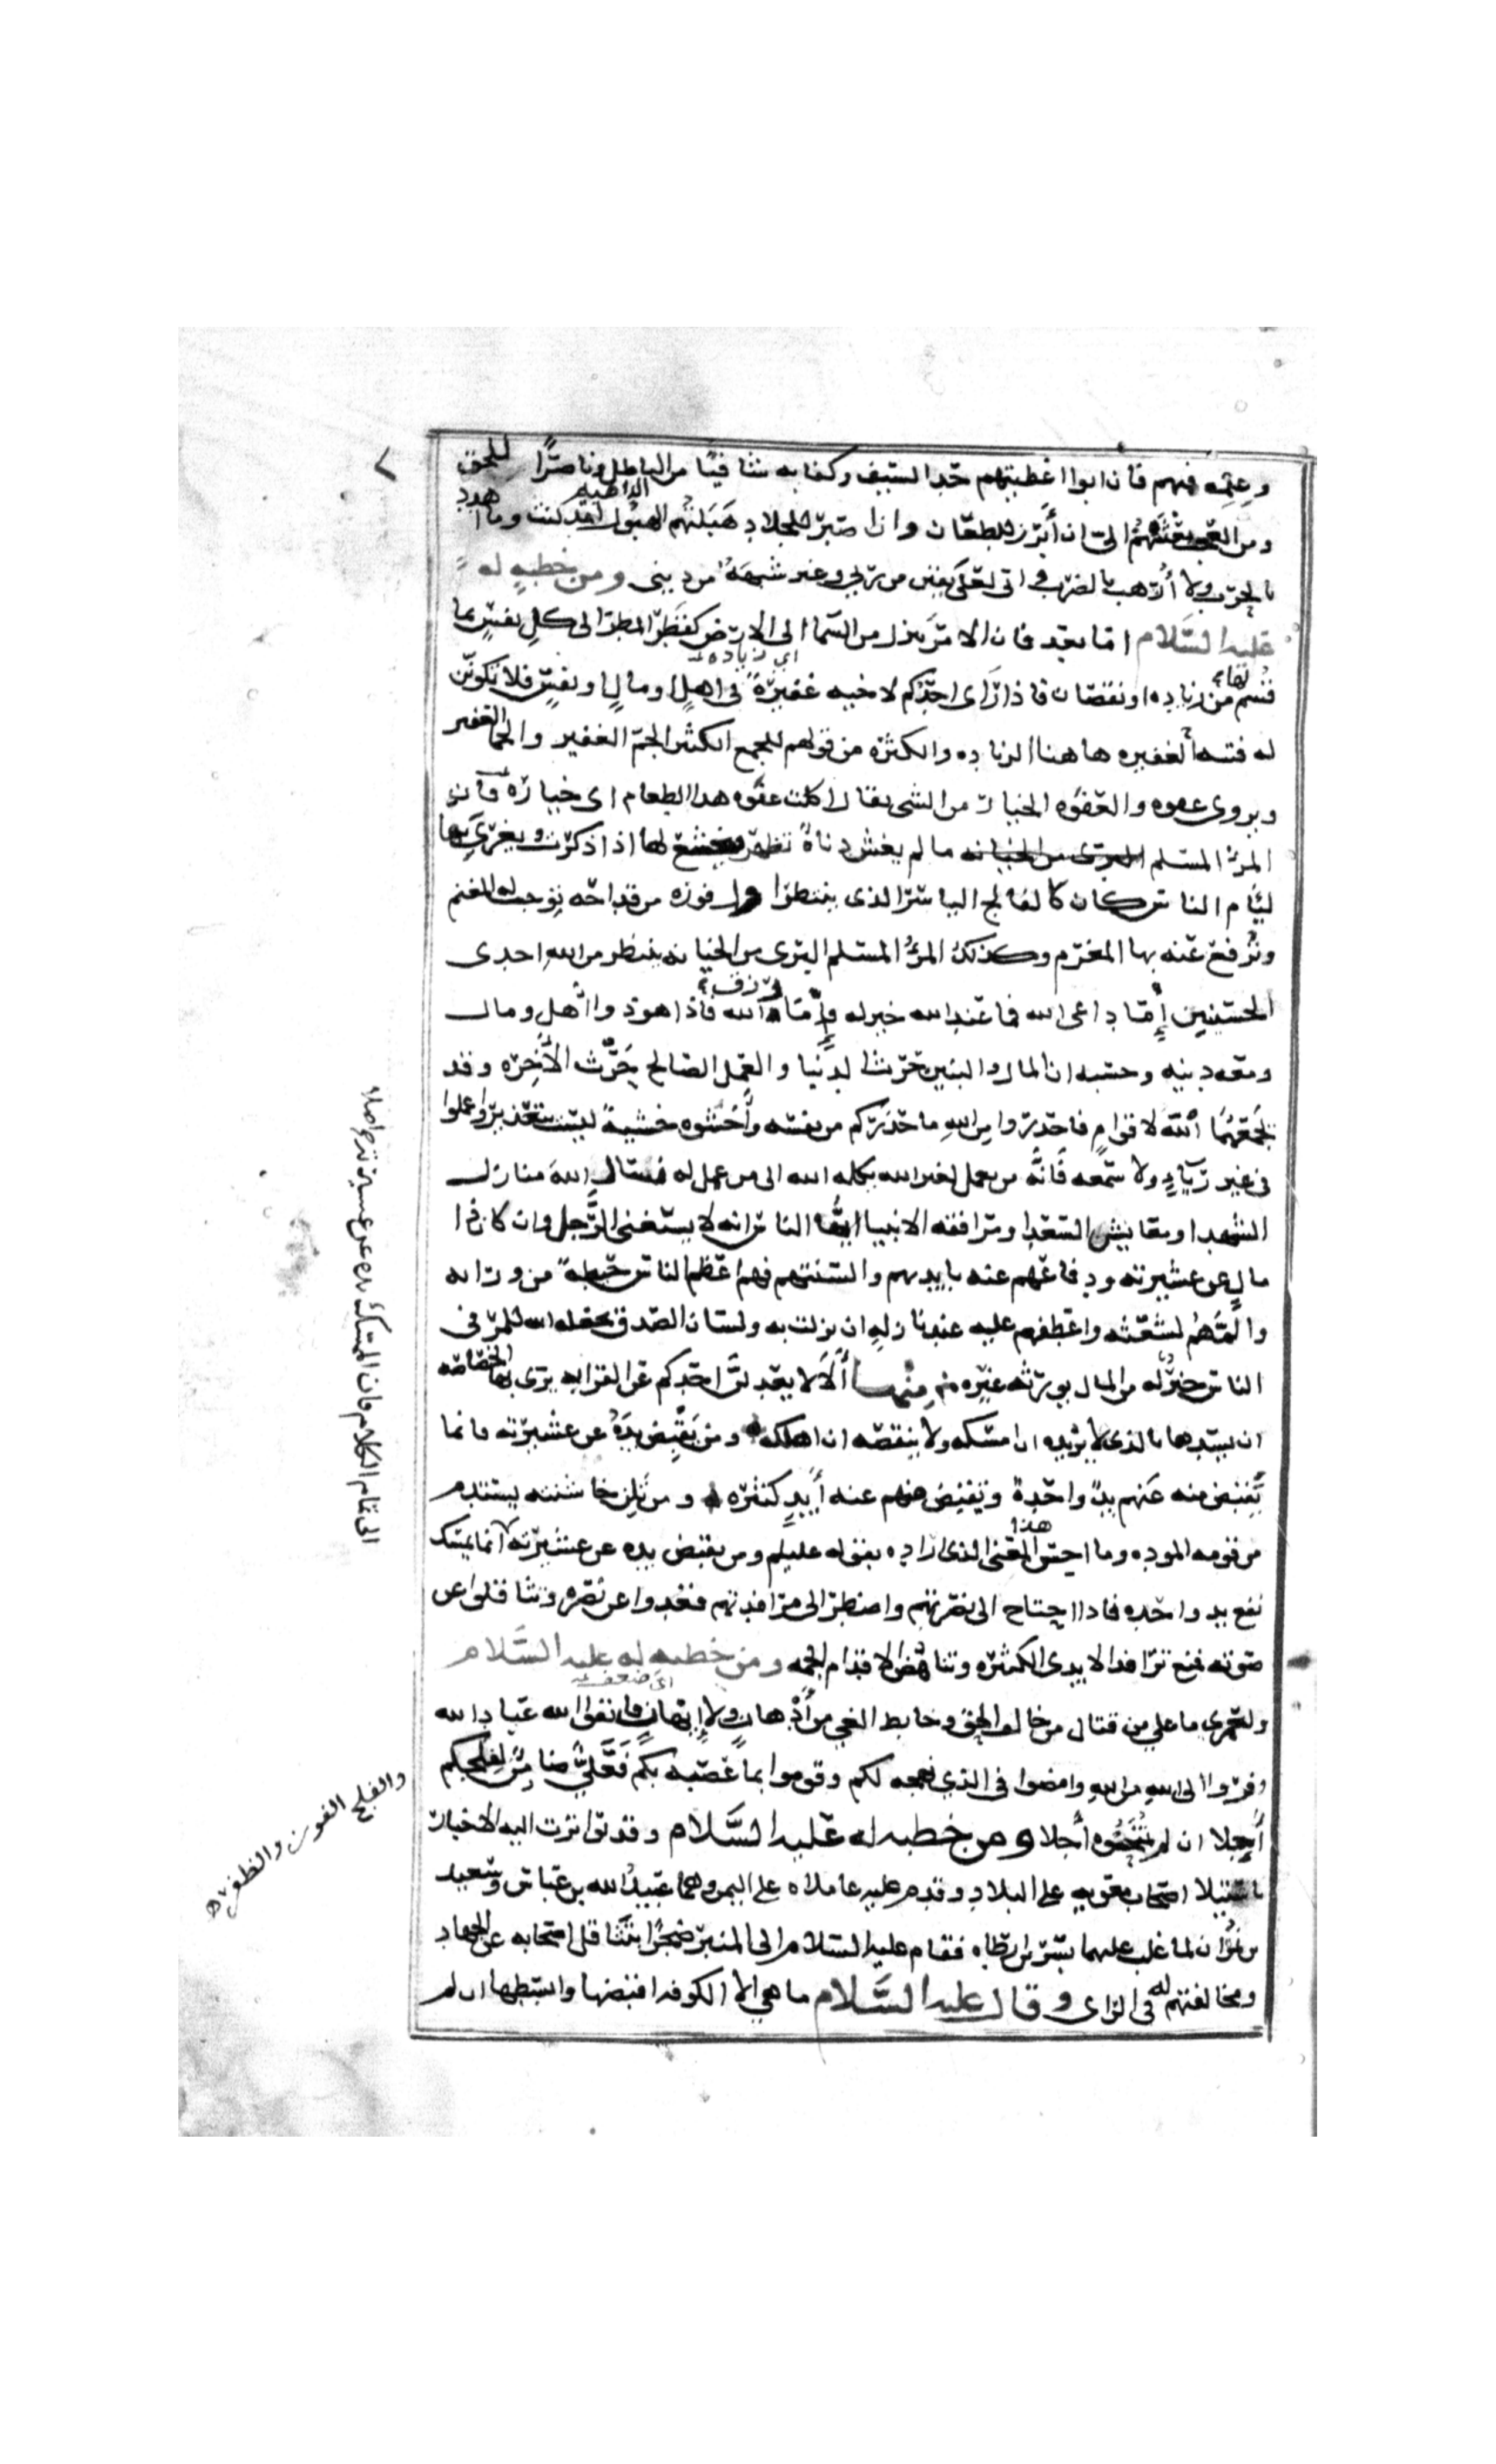 وعلمه فيهم فان ابوا اعطيتهم حد السيف وكفا به شافيًا من الباطل وناصرًا للحق
ومن العجب بعثتهم الىّ ان أبرز للطعان وان اصبر للجلاد هبلتهم الهبول لقد كنت وما اهدد
بالحرب ولا أُرهب بالضرب وانى لعلى يقين من ربي وغير شبهة من دينى ومن خطبةٍ له
عليه السَّلام اما بعد فان الامر ينزل من السما الى الارض كقطر المطر الى كل نفسٍ بما
قُسم لها من زياده او نقصان فاذا رأى احدكم لاخيه غفيرةً فى اهلٍ او مالٍ او نفسٍ فلا تكونن
له فتنه الغفيره هاهنا الزياده والكثره من قولهم للجمع الكثير الجم الغفير والجما الغفير
ويروى عفوه والعفوه الخيار من الشى يقال اكلت عفوه هذا الطعام اى خياره فان
المرؤ المسلم ما لم يغش دناةً تظهر فيخشع لها اذا ذكرت ويغرى بها
ليام الناس كان كالفالج الياسر الذى ينتظر اول فوزه من قداحه توجب له المغنم
وتُرفع عنه بها المغرم وكذلك المرؤ المسلم البرى من الخيانه ينتظر من الله احدى
الحسنيين إِما داعى الله فما عند الله خير له وإِما رزق الله فاذا هو ذو اهل ومال
ومعه دينه وحسبه ان المال والبنين حرث الدنيا والعمل الصالح حرث الآخره وقد
يجمعهما الله لاقوامٍ فاحذروا من الله ما حذركم من نفسه واخشوه خشيةً ليست بتعذير واعملوا
فى غير رياءٍ ولا سمعه فانه من يعمل لغير الله يكله الله الى من عمل له نسال الله منازل
الشهدا ومعايش السعدا ومرافقه الانبيا ايها الناس انه لا يستغنى الرجل وان كان ذا
مالٍ عن عشيرته ودفاعهم عنه بايديهم والسنتهم فهم اعظم الناس حيطةً من ورائه
والمّهم لشعثه واعطفهم عليه عند نازلهٍ ان نزلت به ولسان الصدق يجعله الله للمرء فى
الناس خيرٌ له من المال يورثه غيره منها ألا لا يعدلنَّ احدكم عن القرابه يرى بها الخصاصه
ان يسدها بالذى لا يزيده ان امسكه ولا ينقصه ان اهلكه ومن يقبض يدَهُ عن عشيرته فانما
يُقبض منه عنهم يدٌ واحدةٌ ويقبض منهم عنه أيدٍ كثيره ومن تلن حاشيته يستدم
من قومه الموده وما احسن هذا المعنى الذى اراده بقوله عليلم ومن يقبض يده عن عشيرته انما يمسك
نفع يد واحده فاذا احتاج الى نصرتهم واضطر الى مرافدتهم قعدوا عن نصره وتثاقلوا عن
صوته فمنع ترافد الايدى الكثيره وتناهض الاقدام الجمه ومن خطبهٍ له عليه السَّلام
ولعمرى ما علي من قتال من خالف الحق وخابط الغي من أدهانٍ ولا إيهانٍ فاتقوا الله عباد الله
وفروا الى الله من الله وامضوا فى الذي نهجه لكم وقوموا بما عصبه بكم فَعَليٌّ ضامنٌ لفلجكم
آجلا ان لم تُمنَحُوه عاجلا ومن خطبه له عليه السَّلام وقد تواترت اليه الاخبار
باستيلا اصحاب معويه على البلاد وقدم عليه عاملاه على اليمن وهما عبيد الله بن عباس وسعيد
بن نمران لما غلب عليهما بسر بن ارطاه فقام عليه السلام الى المنبر ضجرًا بتثاقل اصحابه عن الجهاد
ومخالفتهم له فى الراى وقال عليه السَّلام ما هي الا الكوفه اقبضها وابسطها ان لم
الداهيه
اي زياده
اى ضعف
والفلج الفوز والظفر